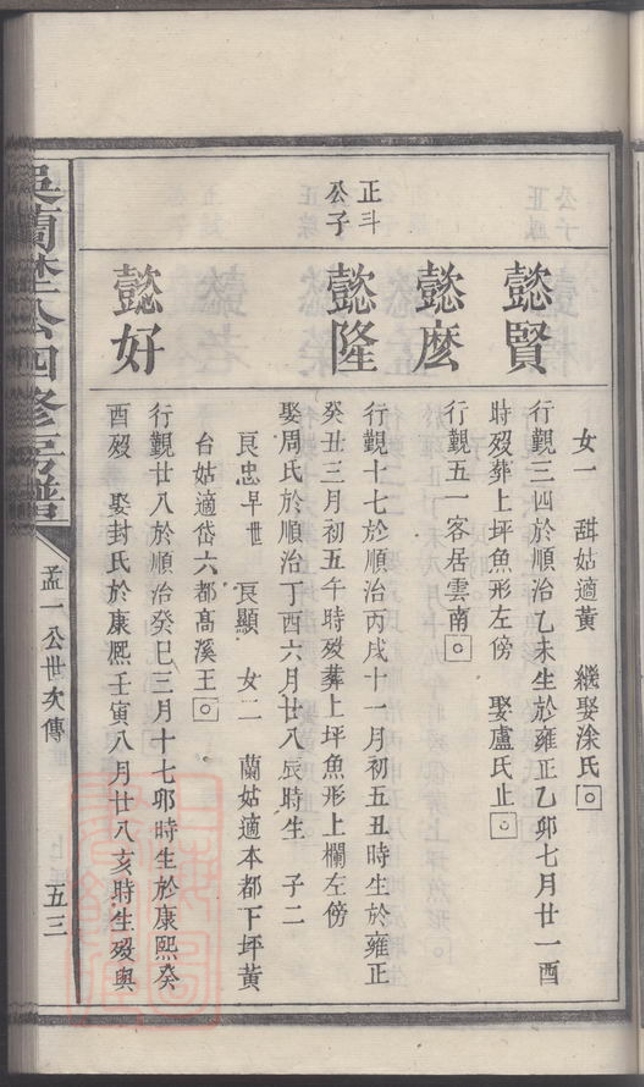 女一　甜姑適黃　繼娶涂氏
懿賢
行觀三四於順治乙未生於雍正乙卯七月廿一酉
時歿葬上坪魚形左傍　娶盧氏止
懿麽
行觀五一客居雲南
正斗
公子
懿隆
行觀十七於順治丙戌十一月初五丑時生於雍正
癸丑三月初五午時歿葬上坪魚形上欄左傍
娶周氏於順治丁酉六月廿八辰時生　子二
良忠早世　良顯　女二　蘭姑適本都下坪黃
台姑適岱六都高溪王
懿好
行觀廿八於順治癸巳三月十七卯時生於康熙癸
酉歿　娶封氏於康熙壬寅八月廿八亥時生歿與
吳蘭埜公四修房譜
孟一公世次傳
五三